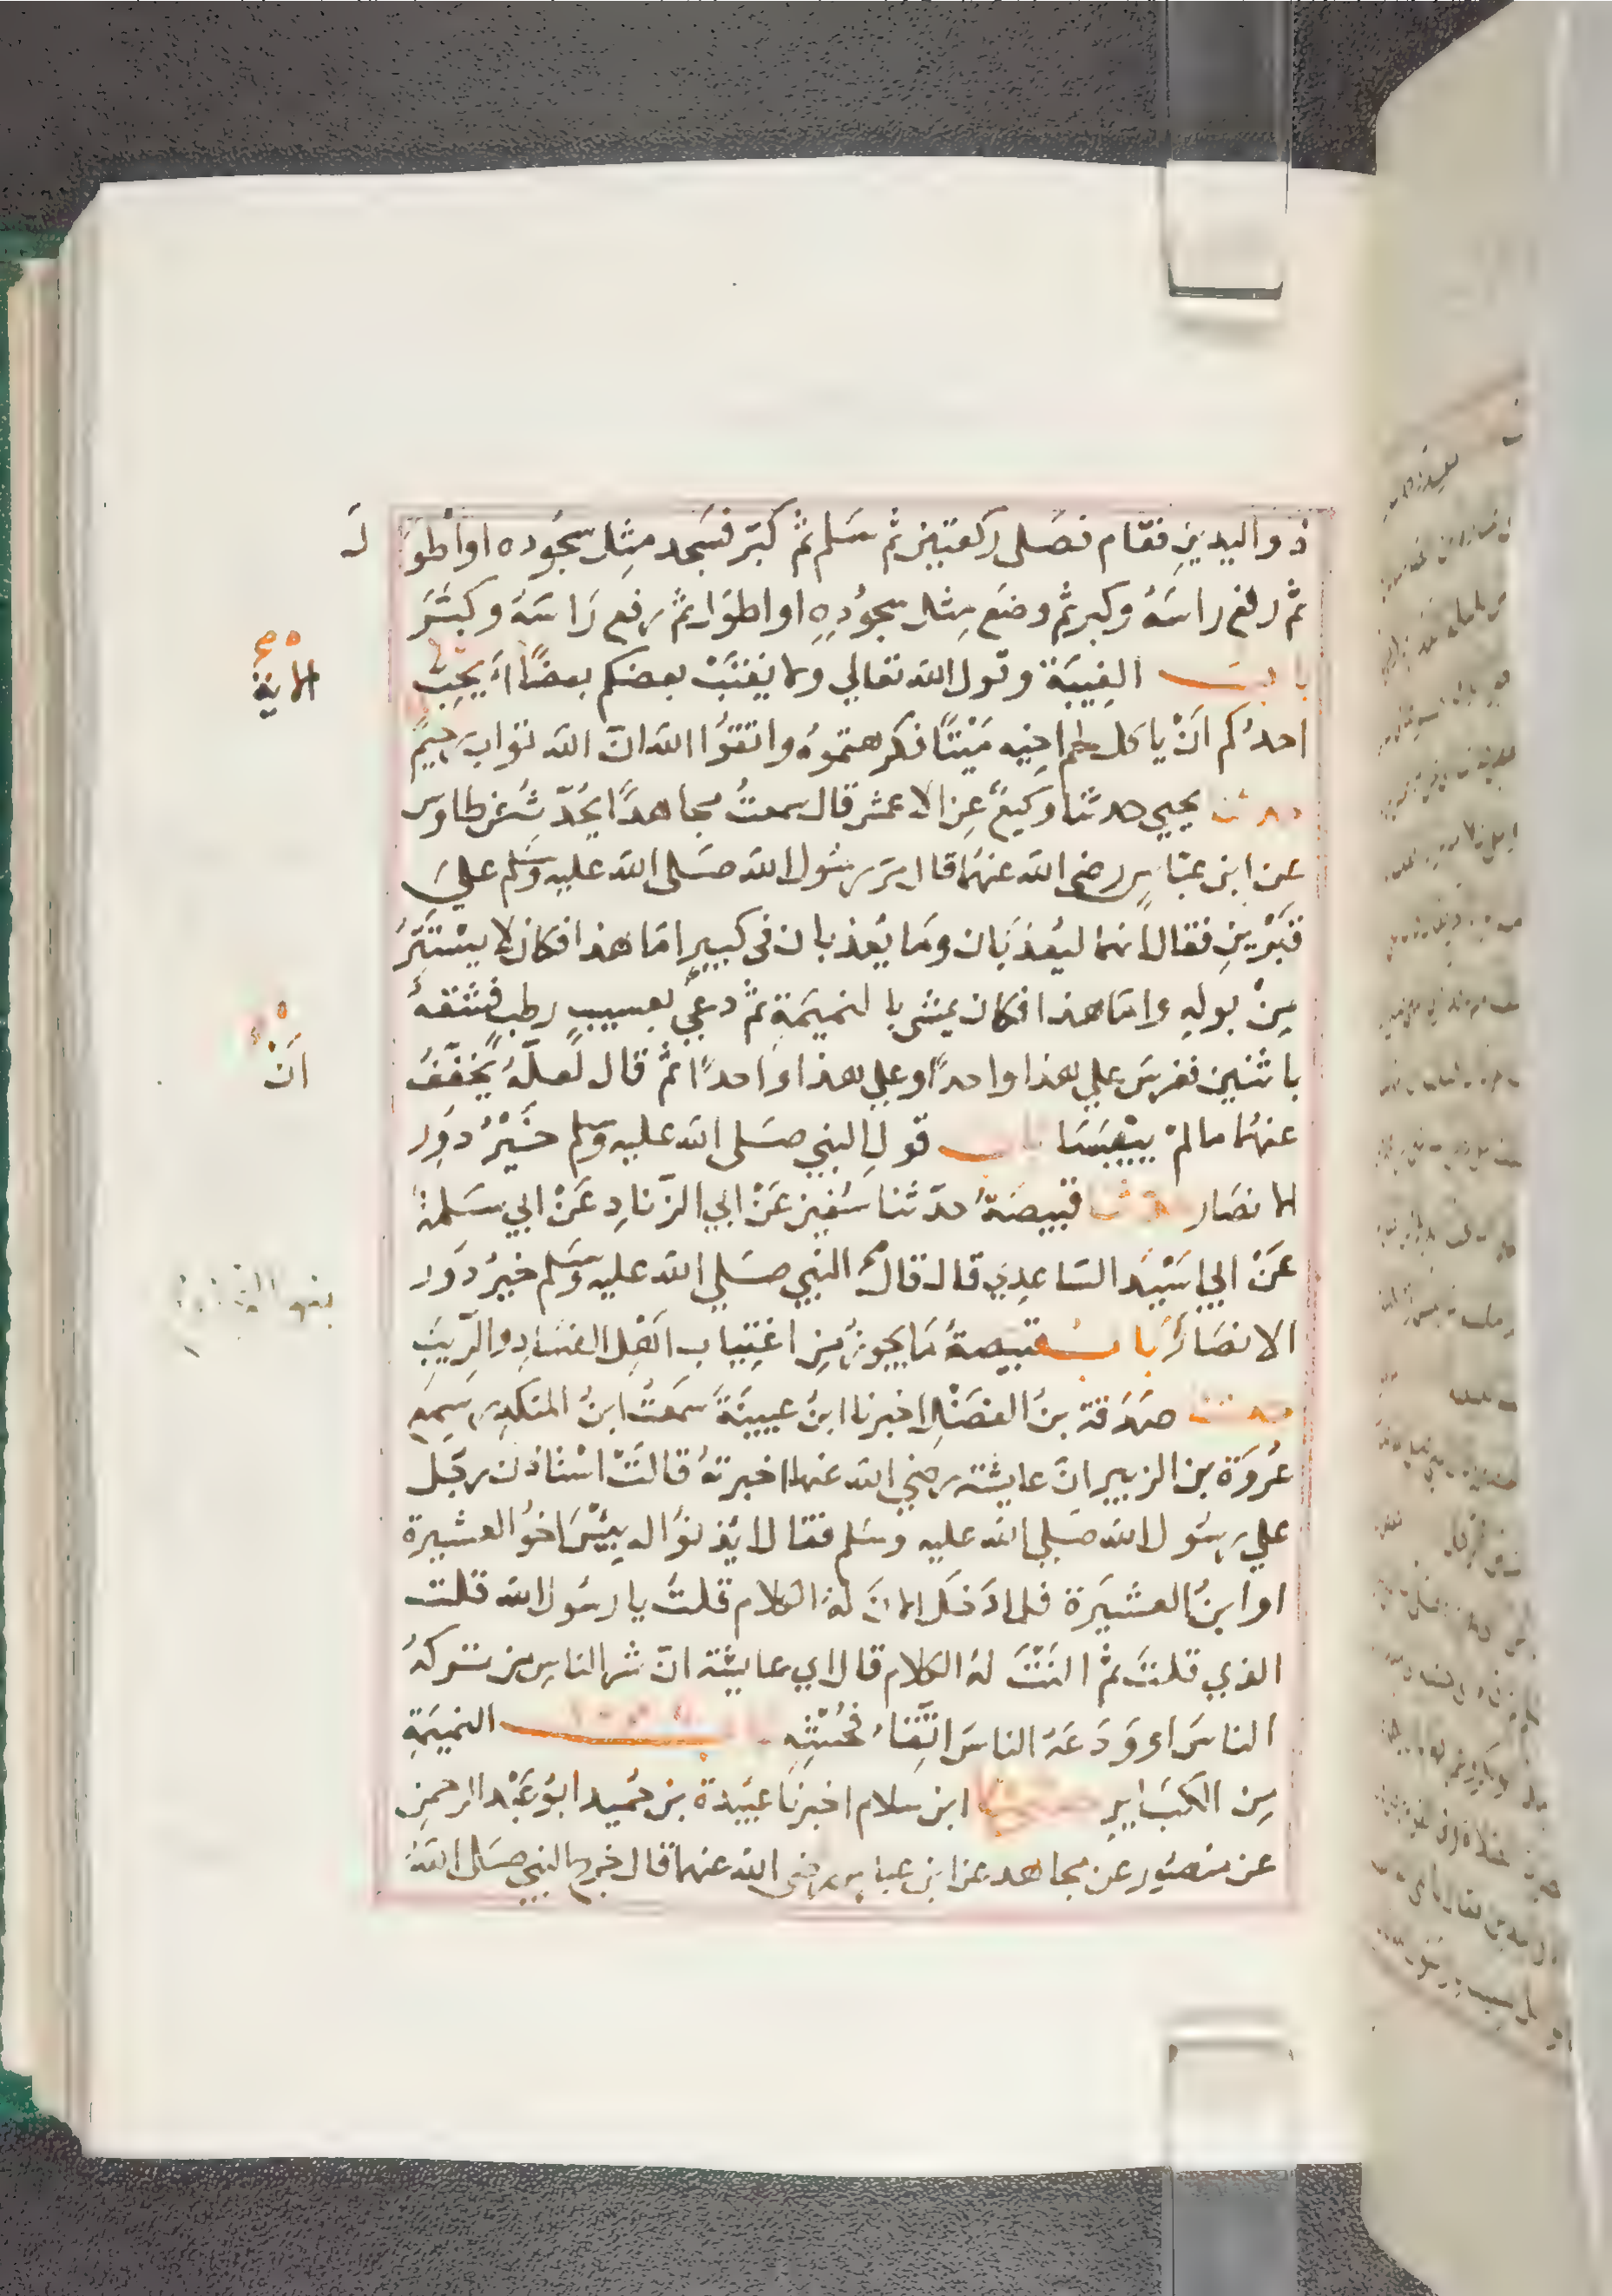 ذو اليدينِ فقام فصَلى ركعتين ثم سَلم ثم كبّر فسَجد مِثل سجُوده او اطوَ لَ
ثم رفع راسَهُ وكبر ثم وضَع مِثل سجوُدِهِ او اطوَل ثم رفع رَاسَهُ وكبَّرَ
باب الغِيبَة وقول الله تعالي ولا يَغتَبْ بعضكم بعضًا اَيحِبّ
احدُكم انْ ياكل لحم اخيه مَيْتًا فكرهتموهُ واتقوُا الله انّ الله توّابٌ رحيمٌ
الاية
حدثنا يحيي حدثنا وكيعٌ عن الاعمش قال سمعتُ مجاهدًا يُحَدّثُ عن طاوس
عن ابن عبّاسٍ رضي الله عنهُما قال مرّ رسُول الله صَلى الله عليه وسَلم عليَ
قبْرَينِ فقال انهما ليُعَذبَان وَمَا يُعَذبان في كبيرٍ امّا هذا فكان لا يسْتَتِرُ
مِنْ بولهِ وامّا هذا فكان يمشي بالنميَمَةِ ثم دعَي بعسيبٍ رطبٍ فشقهُ
باثنين فغرسَ علي هذا واحدًا وعلي هذا واحدًا ثم قال لعلّهُ يُخفّفُ
انْ
عنهُما ما لمْ ييْبَسَا باب قولِ النبي صَلى الله عليه وسلم خَيْرُ دُورِ
الانصَار حدثنا قبيصَةُ حدّثنا سُفين عَنْ ابي الزّنادِ عَنْ ابي سَلمةَ
عَنْ ابي اسَيْدٍ السّاعدِيّ قال قال النبي صَلي الله عليه وسَلم خيرُ دُورِ
الانصَار باب قبيصةُ مَا يجوزُ مِن اغتِيابِ اهْلِ الفسَادِ والرِّيَبِ
حدثنا صَدَقة بنُ الفضْلِ اخبرنا ابنُ عيينَةَ سَمعتُ ابنُ المنكدر سَمعَ
عُروَة بن الزبير انّ عايشة رضي الله عنها اخبرتهُ قالَتْ استاذن رجُل
علي رسُول الله صَلي الله عليه وسَلم فقال ائذنوُا له بِيسَ اخوُ العشيرة
او ابنُ العشيَرة فلما دَخَل الانَ لهُ الكلام قلتُ يا رسُول الله قلت
الذي قلتَ ثم النْتَ لهُ الكلام قال اي عايشة انّ شر الناسِ من تركهُ
الناسَ او وَدَعَهُ الناسَ اتّقاءَ فُحْشِهِ باب النميمَةِ
مِن الكبَايرِ حدثنا ابن سلام اخبرنا عَبيدَة بن حُميد ابوُ عَبْد الرحمنِ
عن منصُور عن مجاهد عن ابن عباس رضي الله عنهما قال خرج النبي صَلى الله